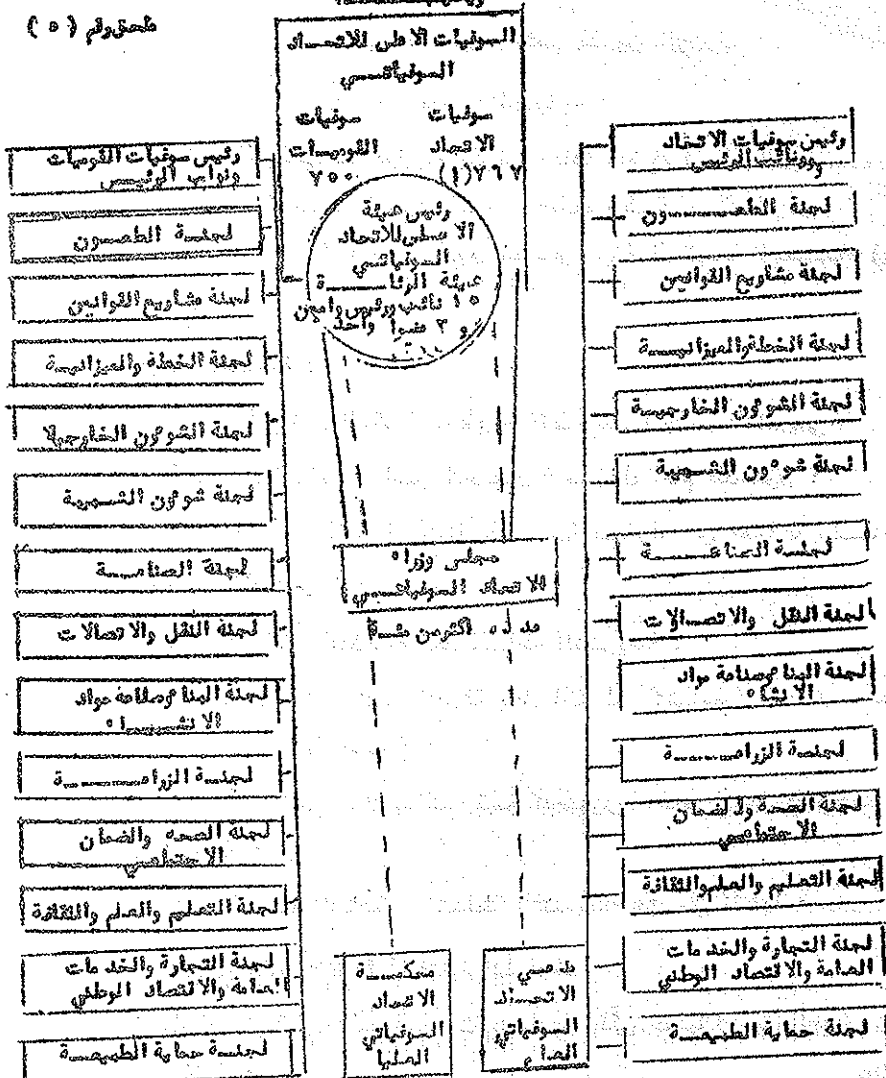 ملحق رقم (٥)
السوفيات الاعلى للاتحاد
السوفياتي
سوفيات
الاتحاد
٧٦٧(١)
سوفيات
القوميات
٧٥٠
رئيس هيئة
الاعلى للاتحاد
السوفياتي
هيئة الرئاسة
١٥ نائب ورئيس وامين
واحد
مجلس وزراء
الاتحاد السوفياتي
اكثر من
مدعي
الاتحاد
السوفياتي
العام
محكمة
الاتحاد
السوفياتي
العليا
رئيس سوفيات الاتحاد
ونائب الرئيس
لجنة الطعون
لجنة مشاريع القوانين
لجنة الخطة والميزانية
لجنة الشوءون الخارجية
لجنة شوءون الشبيبة
لجنة الصناعة
لجنة النقل والاتصالات
لجنة البناء وصناعة مواد
الانشاء
لجنة الزراعة
لجنة الصحة والضمان
الاجتماعي
لجنة التعليم والعلم والثقافة
لجنة التجارة والخدمات
العامة والاقتصاد الوطني
لجنة حماية الطبيعة
رئيس سوفيات القوميات
ونواب الرئيس
لجنة الطعون
لجنة مشاريع القوانين
لجنة الخطة والميزانية
لجنة الشوءون الخارجية
لجنة شوءون الشبيبة
لجنة الصناعة
لجنة النقل والاتصالات
لجنة البناء وصناعة مواد
الانشاء
لجنة الزراعة
لجنة الصحه والضمان
الاجتماعي
لجنة التعليم والعلم والثقافة
لجنة التجارة والخدمات
العامة والاقتصاد الوطني
لجنة حماية الطبيعة